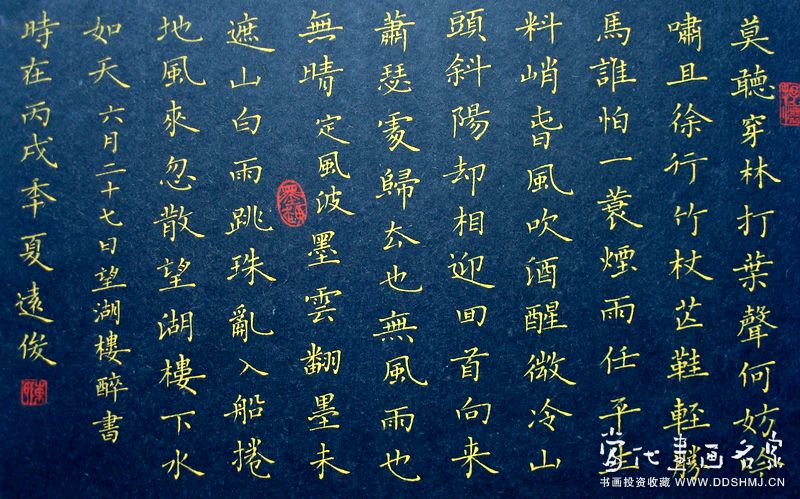 莫聽穿林打葉聲何妨吟
嘯且徐行竹杖芒鞋輕勝
馬誰怕一蓑煙雨任平生
料峭春風吹酒醒微冷山
頭斜陽却相迎回首向来
蕭瑟處歸去也無風雨也
無晴定風波墨雲翻墨未
遮山白雨跳珠亂入船捲
地風來忽散望湖樓下水
如天六月二十七日望湖樓醉書
時在丙戌季夏遠俊
当代书画名家
书画投资收藏 WWW.DDSHMJ.CN